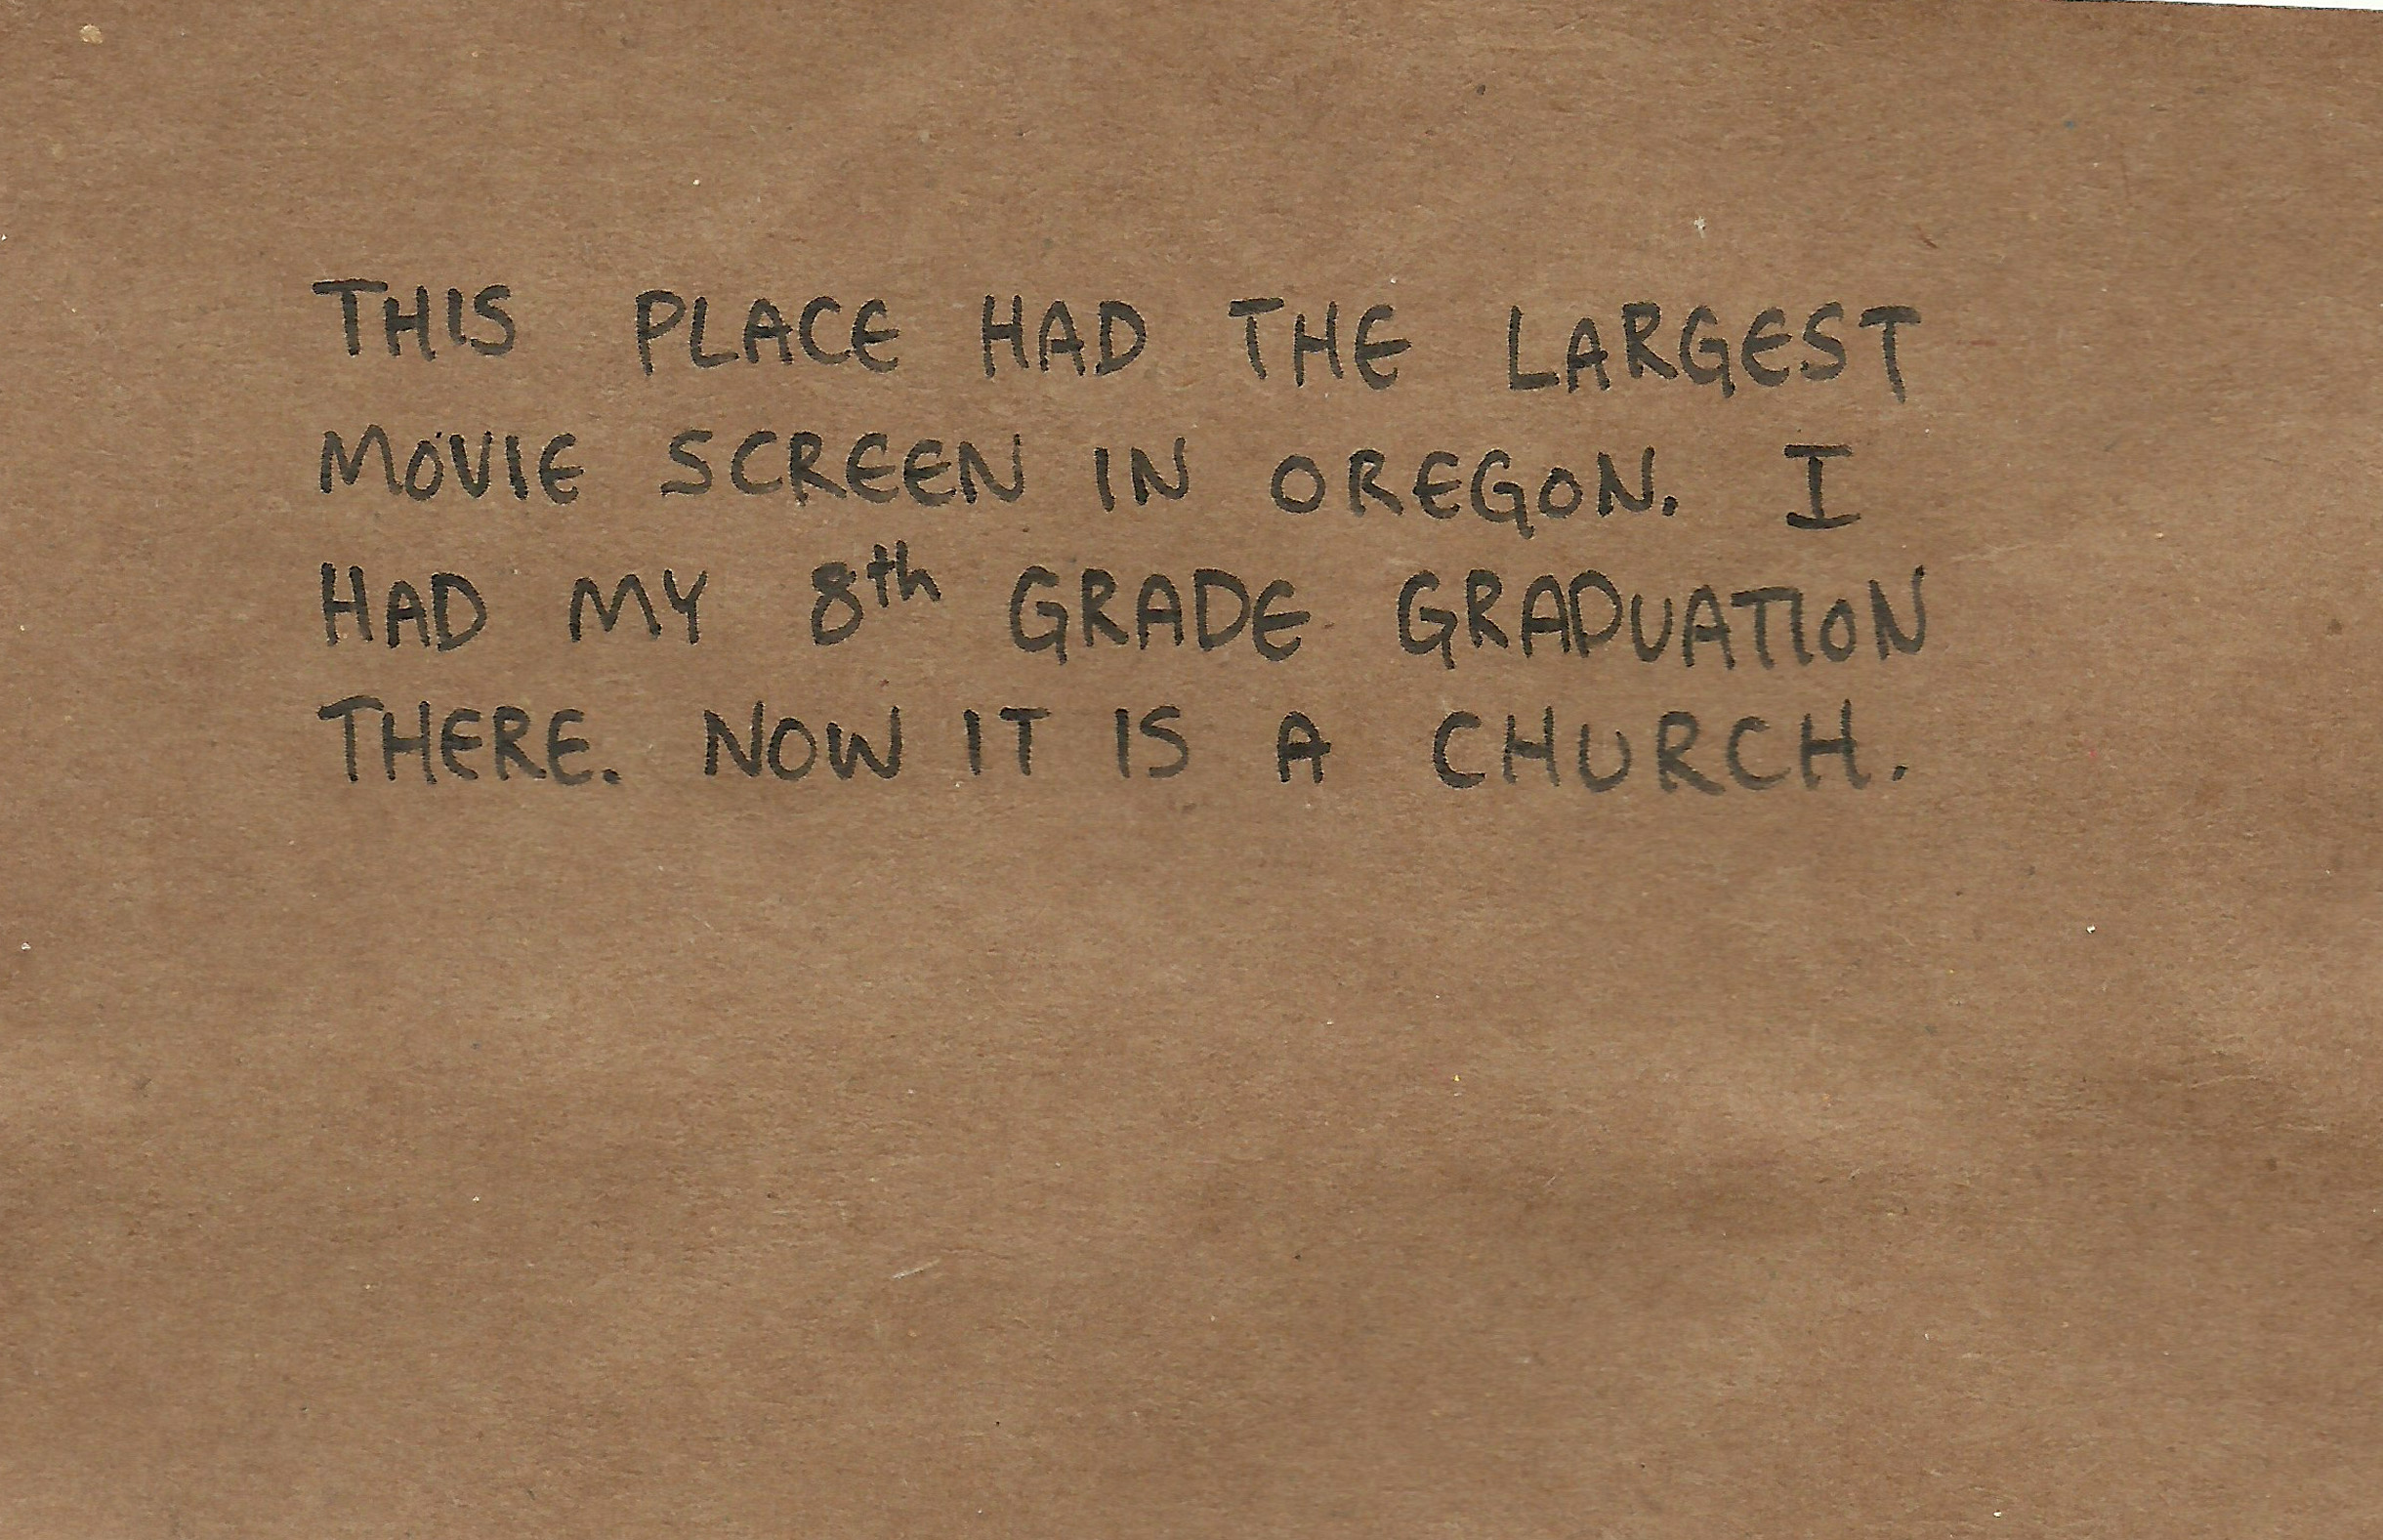 THIS PLACE HAD THE LARGEST
MOVIE SCREEN IN OREGON. I
HAD MY 8th GRADE GRADUATION
THERE. NOW IT IS A CHURCH.